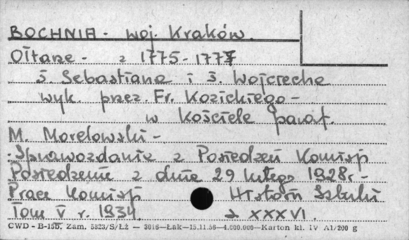 BOCHNIA - woj. Kraków.
Ołtarze - z 1775-1777
ś. Sebastiana i ś. Wojciecha
wyk. przez. Fr. Kozickiego -
w kościele paraf.
M. Morelowski -
Sprawozdanie z Posiedzeń Komisji
Posiedzenie z dnia 29 lutego 1928r -
Prace Komisji Historii Sztuki
Tom V r. 1934. s XXXVI.
CWD - B-150, Zam. 5823/S/Łż - 3016-Łak-13.11.56-4.000.000-Karton kl. IV A1/200 g